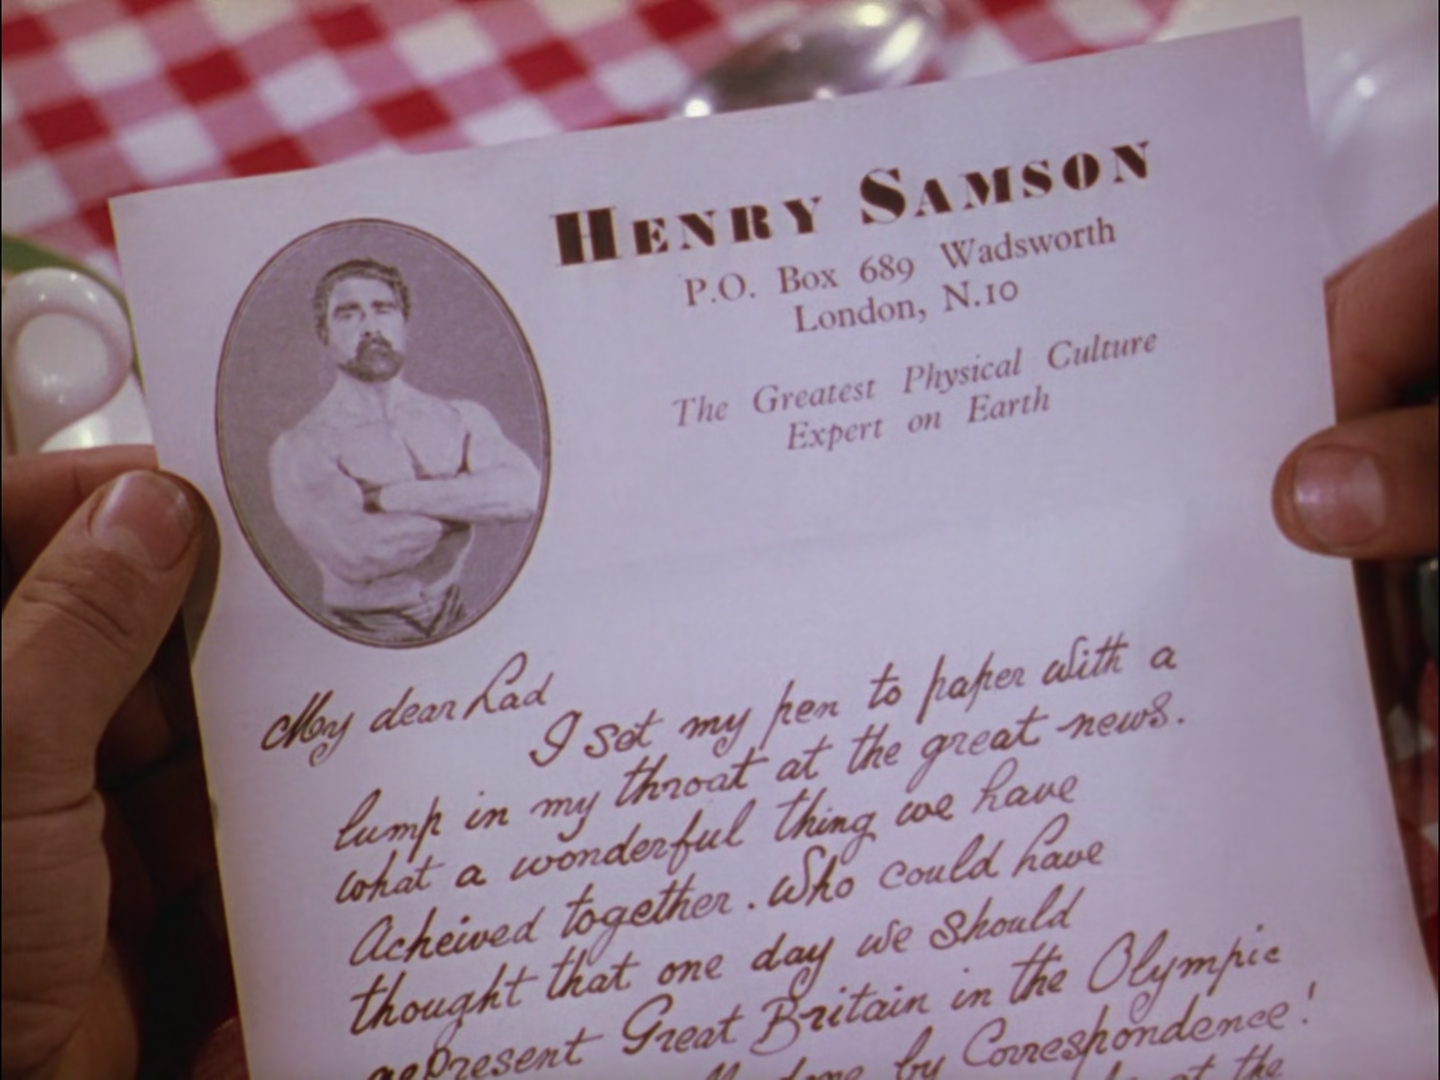 HENRY SAMSON
P.O. Box 689 Wadsworth
London, N.10
The Greatest Physical Culture
Expert on Earth
My dear Lad
I set my pen to paper with a
lump in my throat at the great news.
What a wonderful thing we have
Acheived together. Who could have
thought that one day we should
represent Great Britain in the Olympic
by Correspondence!
at the